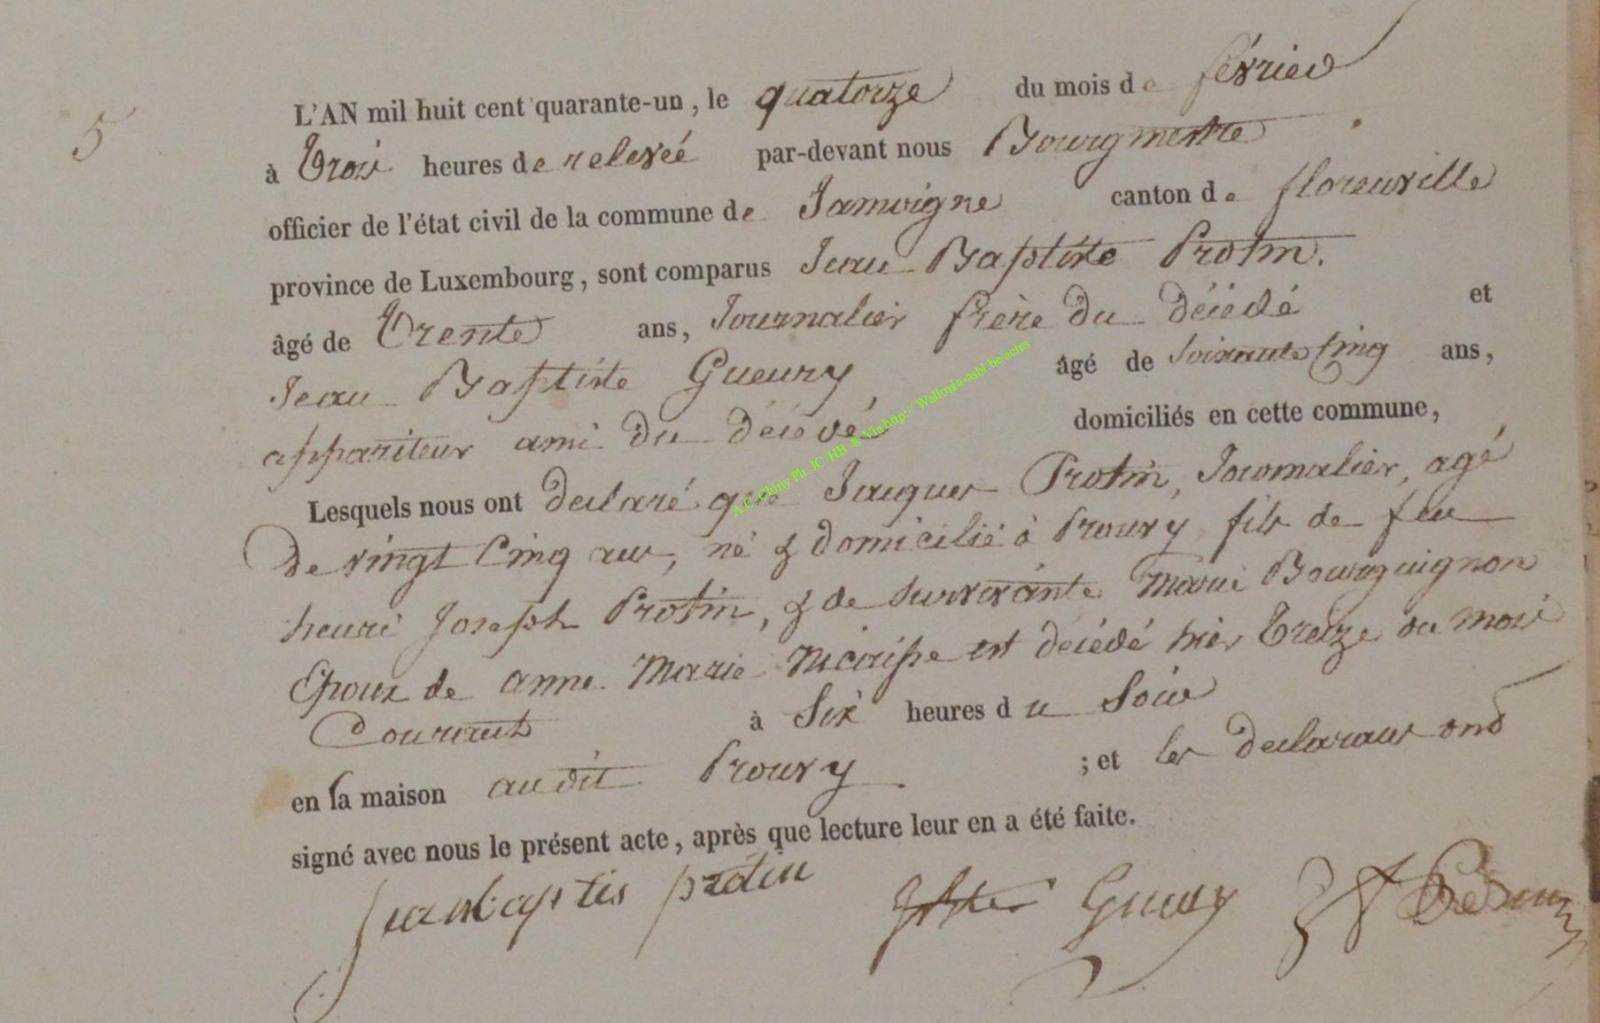 5
L'AN mil huit cent quarante-un, le quatorze du mois de février
à trois heures de relevée par-devant nous Bourgmestre
officier de l'état civil de la commune de Jamoigne canton de florenville
province de Luxembourg, sont comparus Jean Baptiste Protin.
âgé de trente ans, Journalier frère du décédé et
Jean Baptiste Gueury âgé de soixante cinq ans,
appariteur ami du décédé domiciliés en cette commune,
Lesquels nous ont declaré que Jacques Protin, Journalier, agé
de vingt cinq ans, né & domicilié à Prouvy fils de feu
henri Joseph Protin, & de survivante Marie Bourguignon
Epoux de anne Marie Nicaisse est décédé hier treize du mois
Courant à six heures du soir
en la maison audit Prouvy ; et les declarans ont
signé avec nous le présent acte, après que lecture leur en a été faite.
jeanbaptis protin Gueury